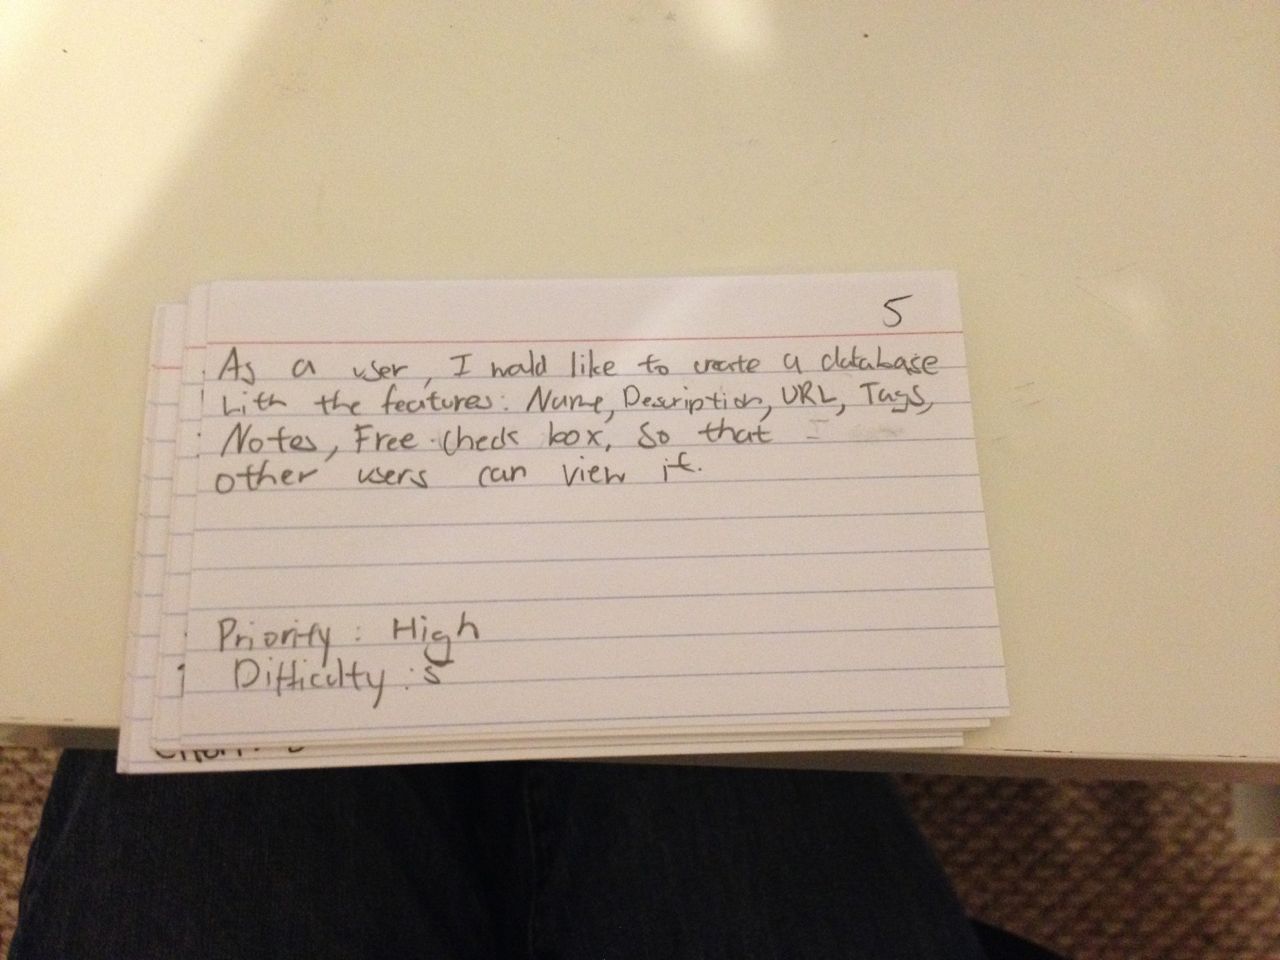 5
As a user, I would like to create a database
with the features: Name, Description, URL, Tags,
Notes, Free check box, so that
other users can view it.
Priority: High
Difficulty: 5